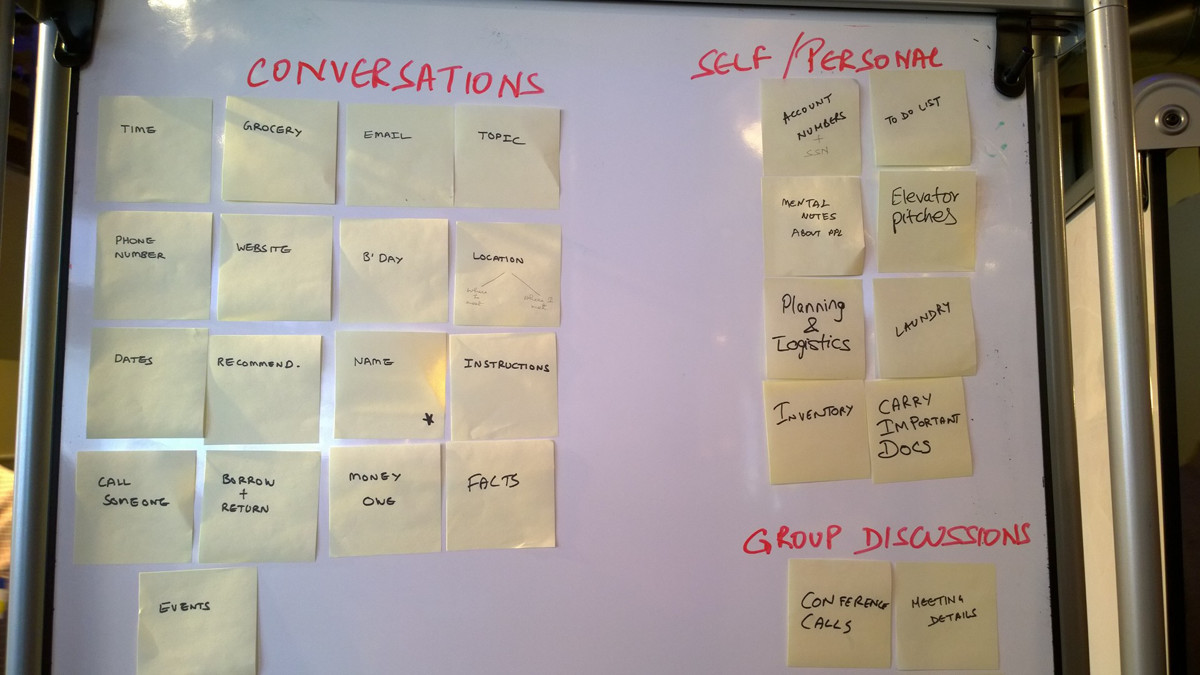 CONVERSATIONS
TIME
GROCERY
EMAIL
TOPIC
PHONE
NUMBER
WEBSITE
B'DAY
LOCATION
where
to
meet
where I
met
DATES
RECOMMEND.
NAME
*
INSTRUCTIONS
CALL
SOMEONE
BORROW
+
RETURN
MONEY
OWE
FACTS
EVENTS
SELF/PERSONAL
ACCOUNT
NUMBERS
+
SSN
TO DO LIST
MENTAL
NOTES
ABOUT PPL
Elevator
pitches
Planning
&
Logistics
LAUNDRY
INVENTORY
CARRY
IMPORTANT
DOCS
GROUP DISCUSSIONS
CONFERENCE
CALLS
MEETING
DETAILS